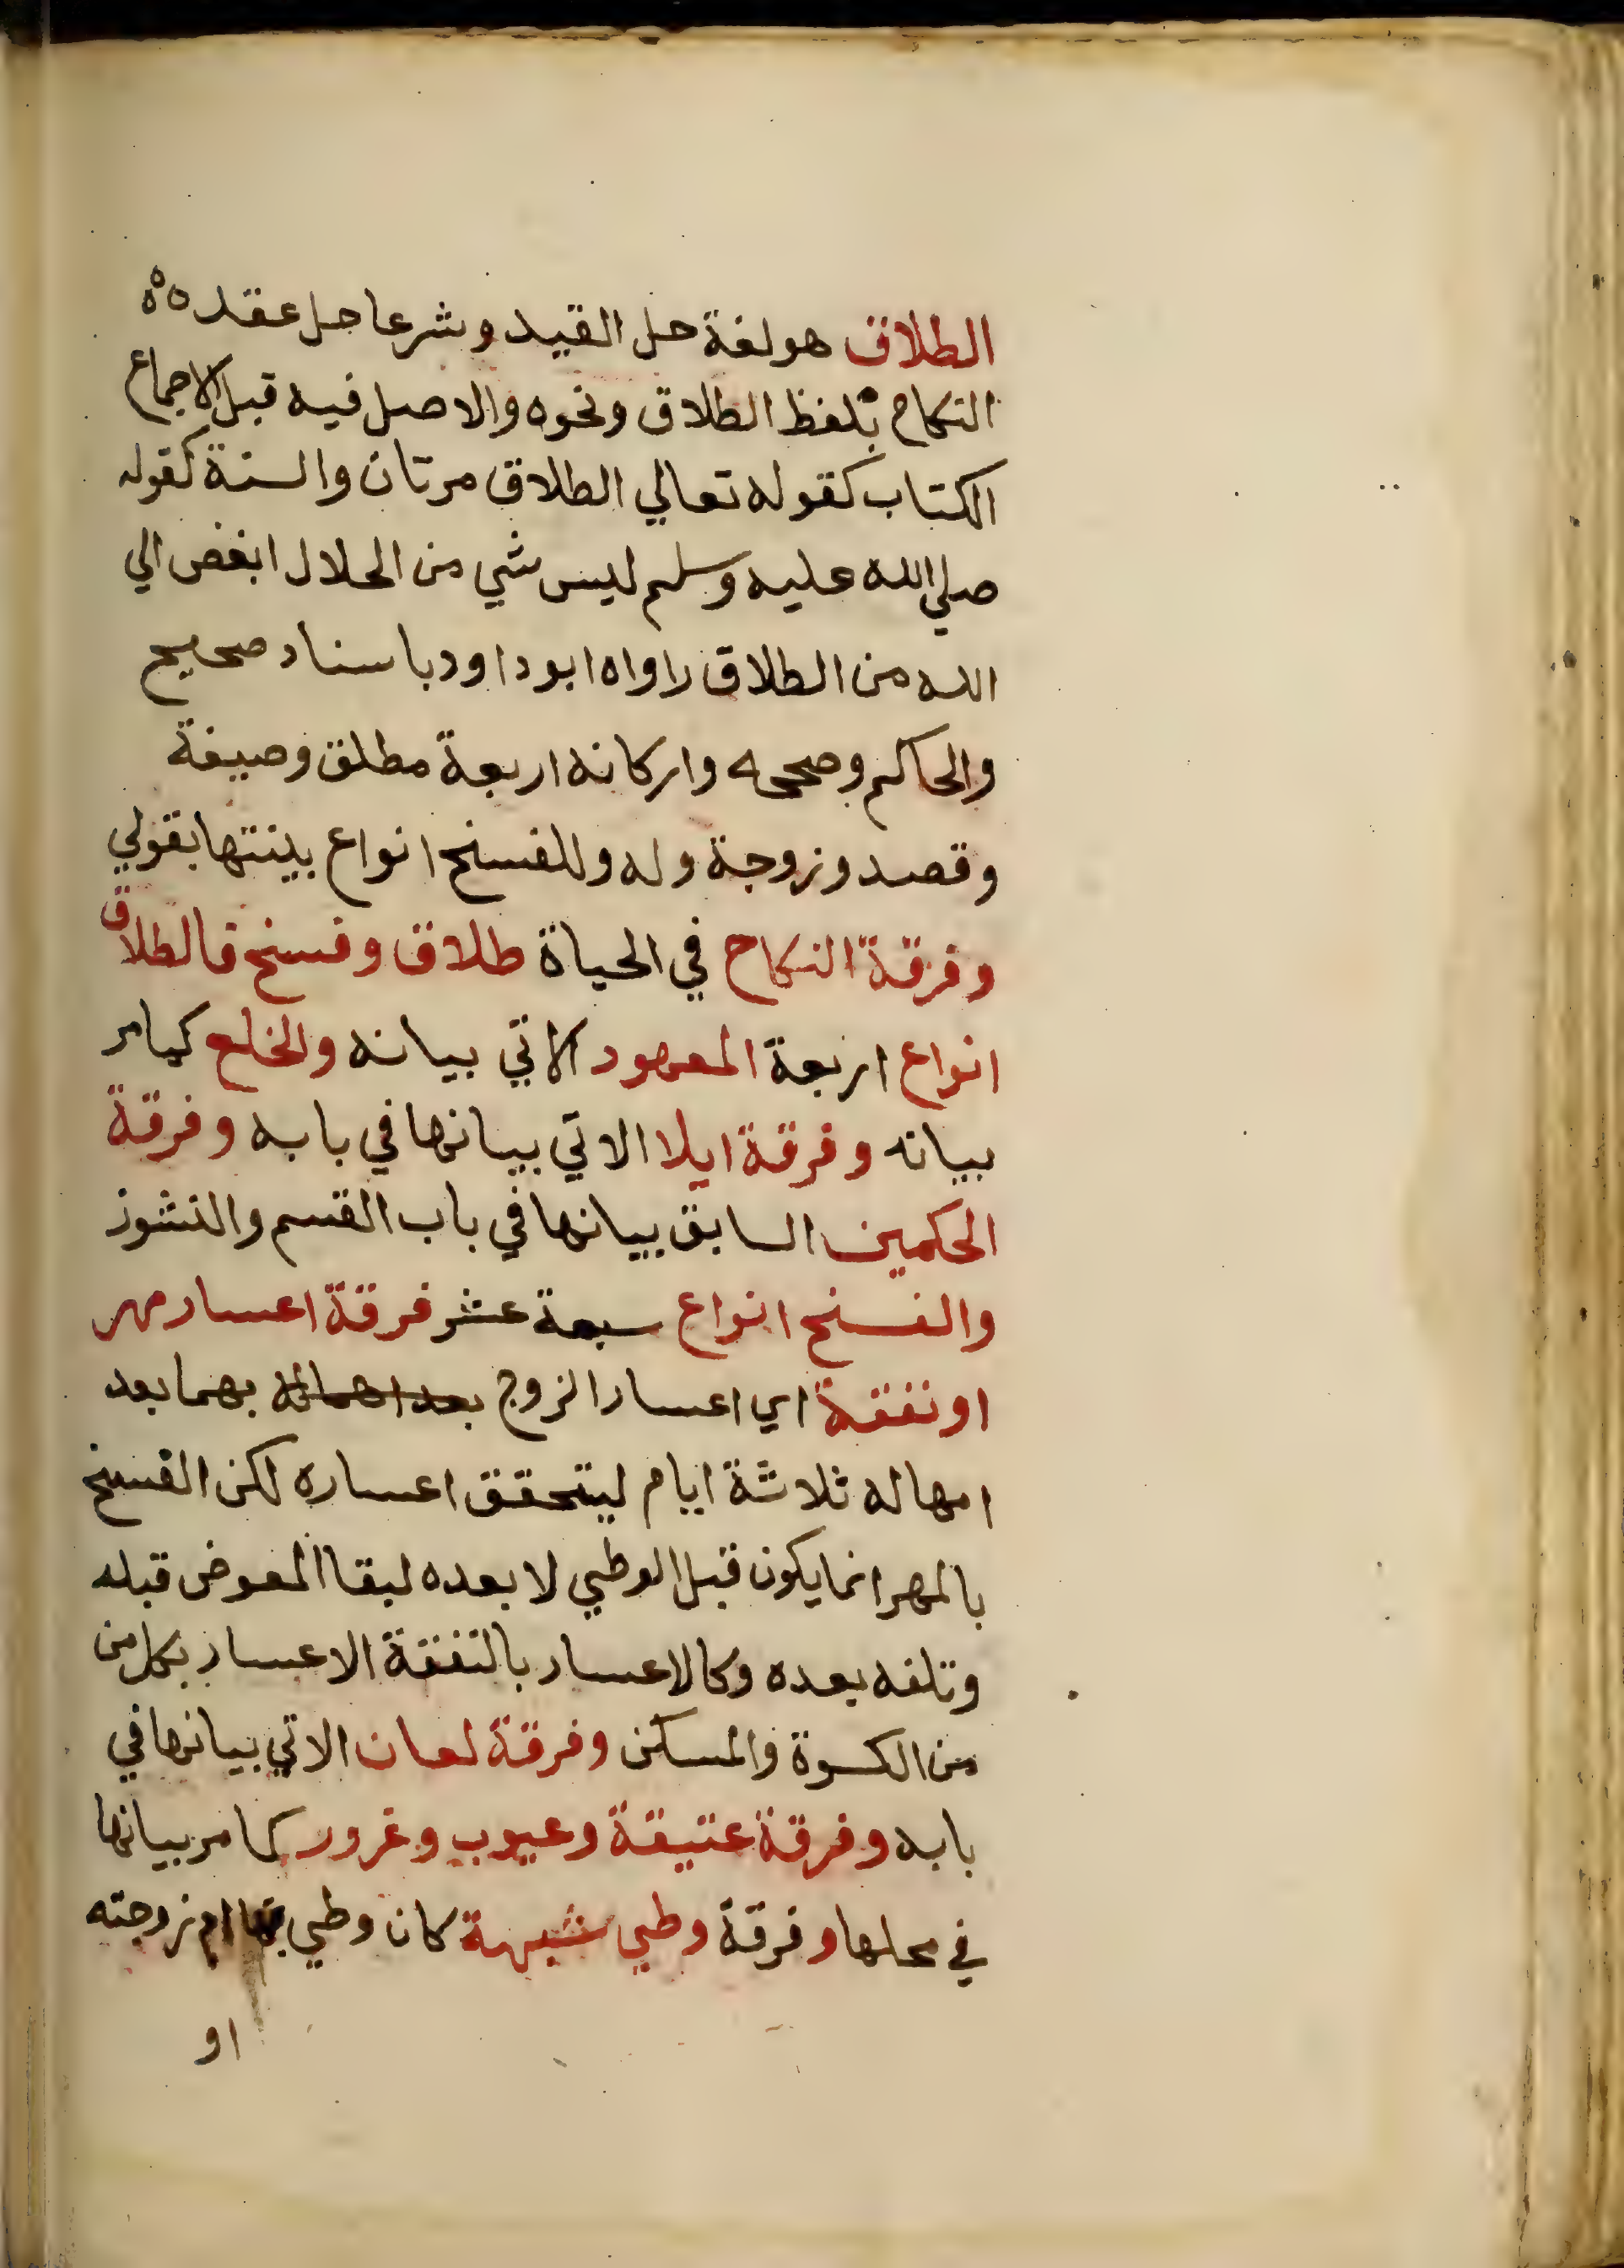 الطلاق هو لغة حل القيد وشرعا حل عقد ه ه
النكاح بلفظ الطلاق ونحوه والاصل فيه قبل الاجماع
الكتاب كقوله تعالي الطلاق مرتان والسنة كقوله
صلي الله عليه وسلم ليس شي من الحلال ابغض الي
الله من الطلاق راواه ابو داود باسناد صحيح
والحاكم وصححه واركانه اربعة مطلق وصيغة
وقصد وزوجة وله وللفسخ انواع بينتها بقولي
وفرقة النكاح في الحياة طلاق وفسخ فالطلاق
انواع اربعة المعهود الاتي بيانه والخلع كما مر
بيانه وفرقة ايلا الاتي بيانها في بابه وفرقة
الحكمين السابق بيانها في باب القسم والنشوز
والفسخ انواع سبعة عشر فرقة اعسار مهر
او نفقة اي اعسار الزوج بعد امهاله بهما بعد
امهاله ثلاثة ايام ليتحقق اعساره لكن الفسخ
بالمهر انما يكون قبل الوطي لا بعده لبقا المعوض قبله
وتلفه بعده وكالاعسار بالنفقة الاعسار بكل من
من الكسوة والمسكن وفرقة لعان الاتي بيانها في
بابه وفرقة عتيقة وعيوب وغرور كما مر بيانها
في محلها وفرقة وطي شبهة كان وطي بها ام زوجته
او